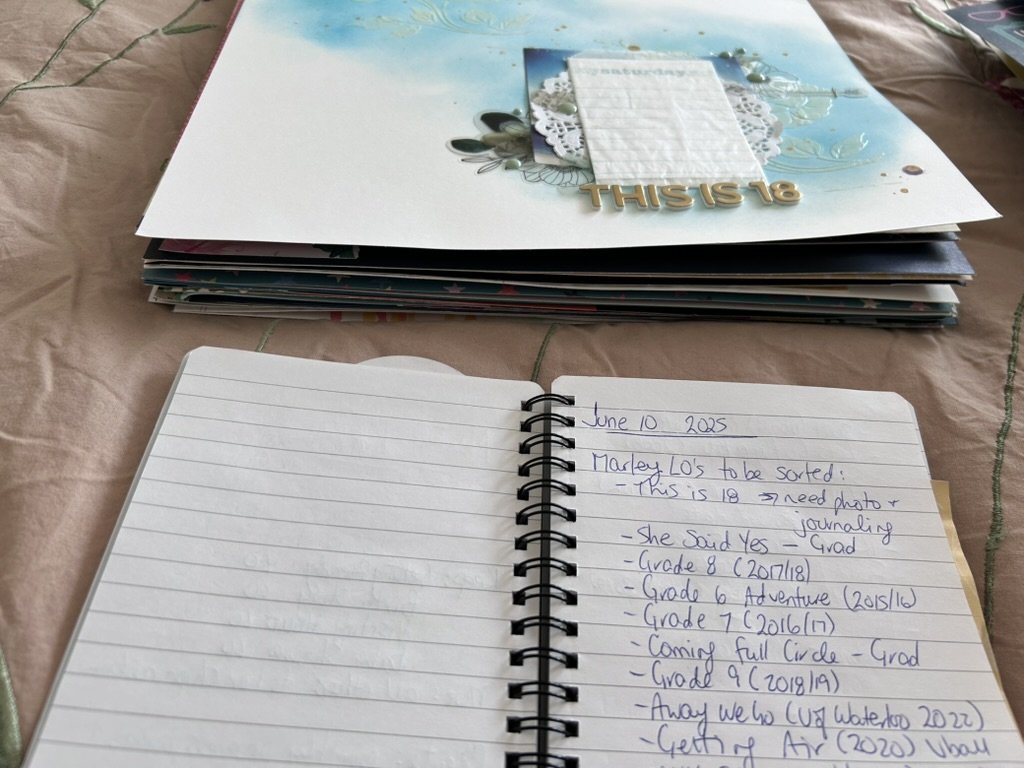 saturday
THIS IS 18
June 10 2025
Marley LO's to be sorted:
- This is 18 → need photo +
journaling
- She Said Yes - Grad
- Grade 8 (2017/18)
- Grade 6 Adventure (2015/16)
- Grade 7 (2016/17)
- Coming Full Circle - Grad
- Grade 9 (2018/19)
- Away We Go (U of Waterloo 2022)
- Getting Air (2020) Vball